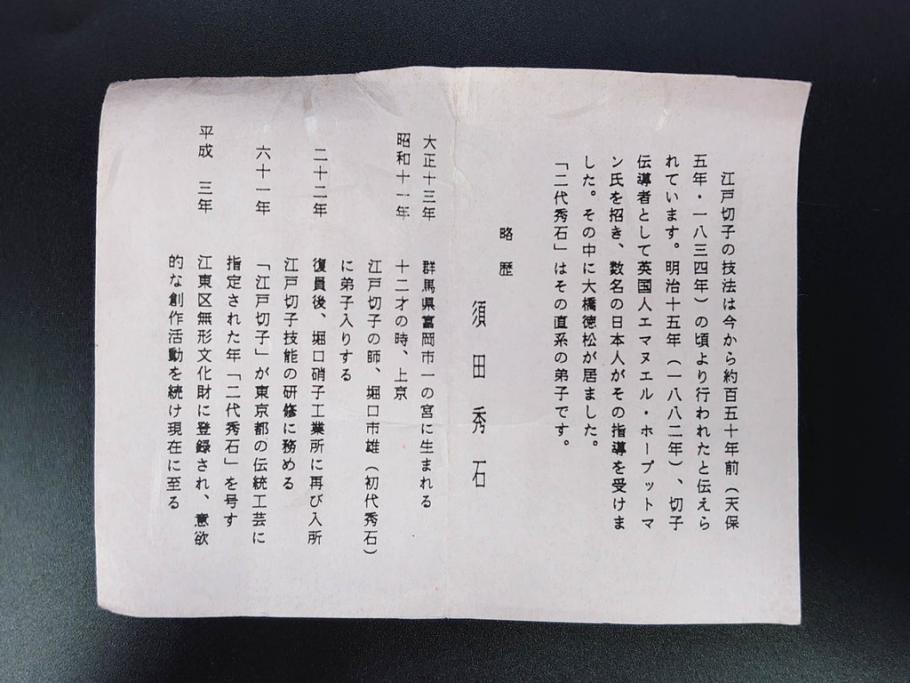 江戸切子の技法は今から約百五十年前（天保
五年・一八三四年）の頃より行われたと伝えら
れています。明治十五年（一八八二年）、切子
伝導者として英国人エマヌエル・ホープットマ
ン氏を招き、数名の日本人がその指導を受けま
した。その中に大橋徳松が居ました。
「二代秀石」はその直系の弟子です。
略歴
須田秀石
大正十三年　群馬県富岡市一の宮に生まれる
昭和十一年　十二才の時、上京
江戸切子の師、堀口市雄（初代秀石）
に弟子入りする
二十二年　復員後、堀口硝子工業所に再び入所
江戸切子技能の研修に務める
六十一年　「江戸切子」が東京都の伝統工芸に
指定された年「二代秀石」を号す
平成　三年　江東区無形文化財に登録され、意欲
的な創作活動を続け現在に至る